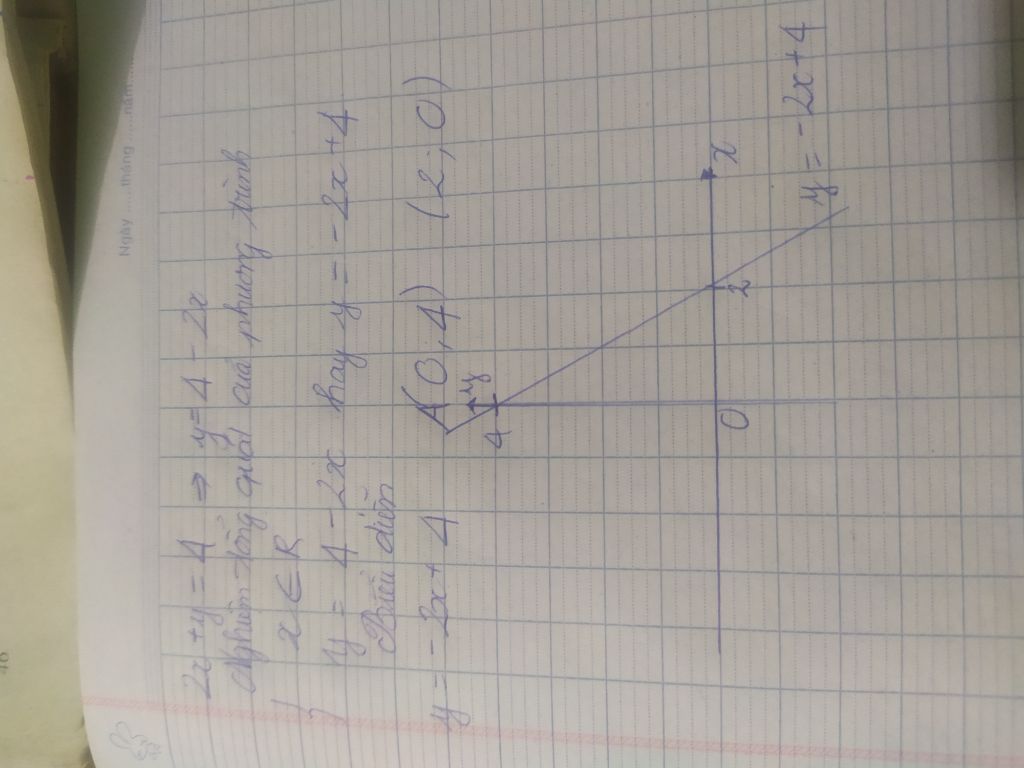 Ngày ..... tháng ..... năm.....
2x + y = 4 ⇒ y = 4 - 2x
Nghiệm tổng quát của phương trình
{ x ∈ R
y = 4 - 2x hay y = -2x + 4
Biểu diễn
y = -2x + 4 A(0; 4) (2; 0)
y
4
O 2 x
y = -2x + 4